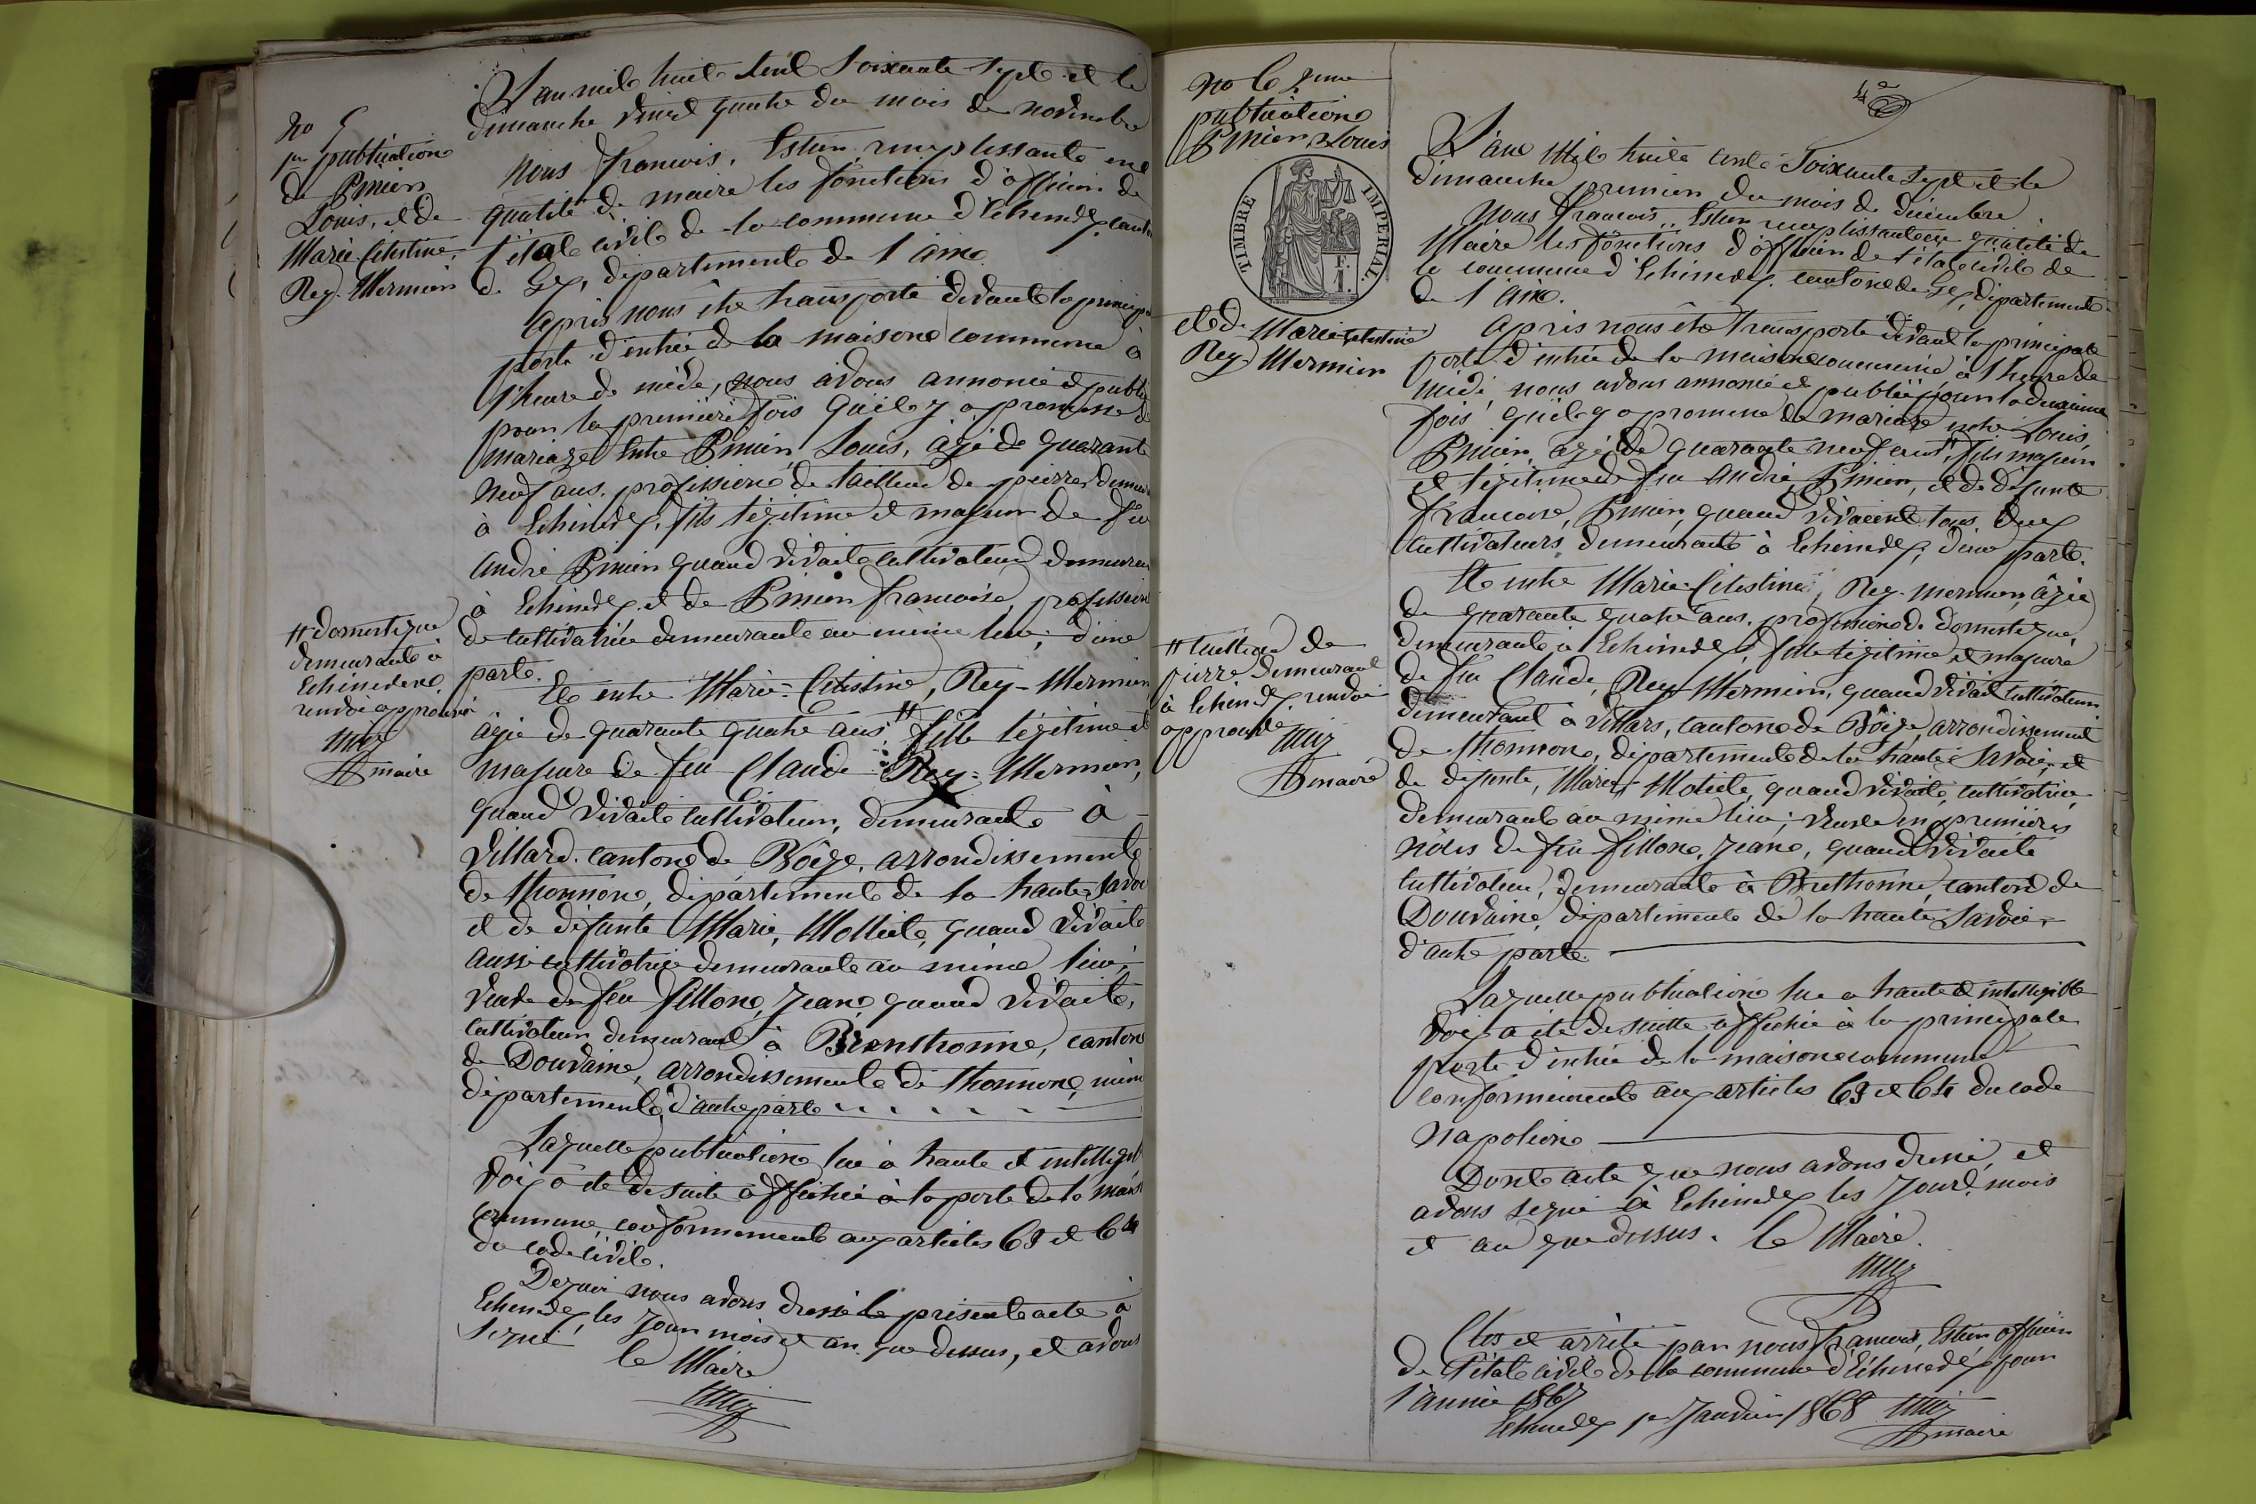 No 5
1re publication
de Pmien
Louis, et de
Marie Célestine,
Rey-Mermien
L'an mile huit cent soixante sept et le
dimanche vingt quatre du mois de novembre
nous francois, Estier remplissante en
qualité de maire les fonctions d'officier de
l'état civile de la commune d'Echenevex, canton
de Gex, département de l'ain.
après nous être transporté devant la principale
porte d'entrée de la maison commune à
l'heure de midi, nous avons annoncé et publié
pour la première fois qu'il y a promesse de
mariage entre Pmien, Louis, âgé de quarante
neuf ans, profession de tailleur de pierre, demeurant
à Echenevex, fils légitime et majeur de feu
André Pmien quand vivait cultivateur demeurant
à Echenevex et de Pmien francoise, profession
de cultivatrice demeurante au même lieu, d'une
parte.
Et entre Marie-Célestine, Rey-Mermien
âgée de quarante quatre ans # fille légitime et
majeure de feu Claude Rey-Mermien,
quand vivait cultivateur, demeurant à
Villard, canton de Boège, arrondissement
de Thonnon, département de la haute Savoie
et de défunte Marie, Molliet, quand vivait
aussi cultivatrice demeurante au même lieu,
veuve de feu fillon, Jean, quand vivait,
cultivateur demeurant à Brenthonne, canton
de Douvaine, arrondissement de Thonnon, même
département, d'autre parte
Laquelle publication lue à haute et intelligible
voix a été de suite affichée à la porte de la maison
commune, conformément aux articles 63 et 64
du code civile.
Dequoi nous avons dressé le présente acte à
Echenevex, les jour mois et an que dessus, et avons
signé
le Maire
# domestique
demeurante à
Echenevex
renvoi approuvé
maire
No 6 2me
publication
Pmien Louis
TIMBRE IMPERIAL.
et de Marie Célestine
Rey-Mermien
L'an Mil huit cent soixante sept et le
dimanche premier du mois de décembre
Nous francois, Estier remplissante en qualité de
Maire les fonctions d'officier de l'état civile de
la commune d'Echenevex, canton de Gex, département
de l'ain.
après nous être transporté devant la principale
porte d'entrée de la maison commune à l'heure de
midi, nous avons annoncé et publié pour la deuxième
fois qu'il y a promesse de mariage entre Louis,
Pmien, âgé de quarante neuf ans # fils majeur
et légitime de feu André, Pmien, et de défunte
francoise, Pmien, quand vivaient tous deux
cultivateurs demeurante à Echenevex; d'une parte.
Et entre Marie-Célestine, Rey-Mermien, âgée
de quarante quatre ans, profession de domestique,
demeurante à Echenevex, fille légitime et majeure
de feu Claude, Rey-Mermien, quand vivait cultivateur
demeurant à Villars, canton de Boège, arrondissement
de Thonnon, département de la haute Savoie, et
de défunte, Marie, Molliete, quand vivait, cultivatrice
demeurante au même lieu; veuve en premières
nôces de feu fillon, Jean, quand vivait
cultivateur, demeurante à Brethonne canton de
Douvaine, département de la haute Savoie,
d'autre parte.
Laquelle publication lue a haute et intelligible
voix a été de suitte affichée à la principale
porte d'entrée de la maison commune
conformémente aux articles 63 et 64 du code
Napoléon
Donte acte que nous avons dressé, et
avons signé à Echenevex les jour, mois
et an que dessus. Le Maire.
# tailleur de
pierre demeurant
à Echenevex, renvoi
approuvé
maire
Clos et arrêté par nous francois, Estier officier
de l'état civil de la commune d'Echenevex pour
l'année 1867
Echenevex 1er Janvier 1868
maire